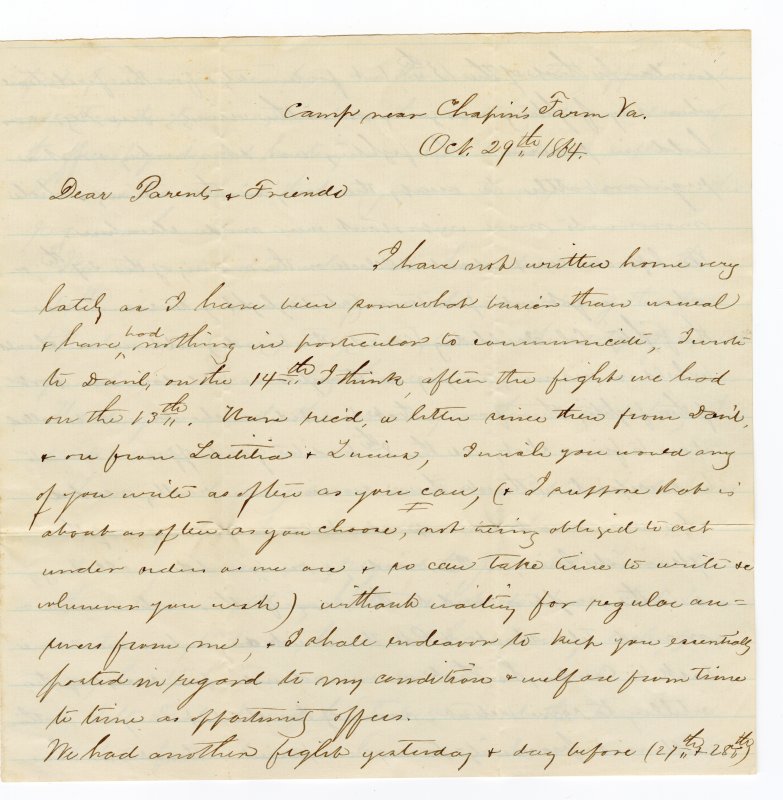 Camp near Chapin's Farm Va.
Oct. 29th 1864.
Dear Parents & Friends
I have not written home very
lately as I have been somewhat busier than usual
& have had nothing in particular to communicate, I wrote
to Danl, on the 14th I think, after the fight we had
on the 13th. Have rec'd, a letter since then from Dan'l,
& one from Laetitia & Lucius, I wish you would any
of you write as often as you can, (& I suppose that is
about as often as you choose, not being obliged to act
under orders as we are & so can take time to write &c
whenever you wish) without waiting for regular an=
swers from me, & I shall endeavor to keep you essentially
posted in regard to my condition & welfare from time
to time as opportunity offers.
We had another fight yesterday & day before (27th & 28th)